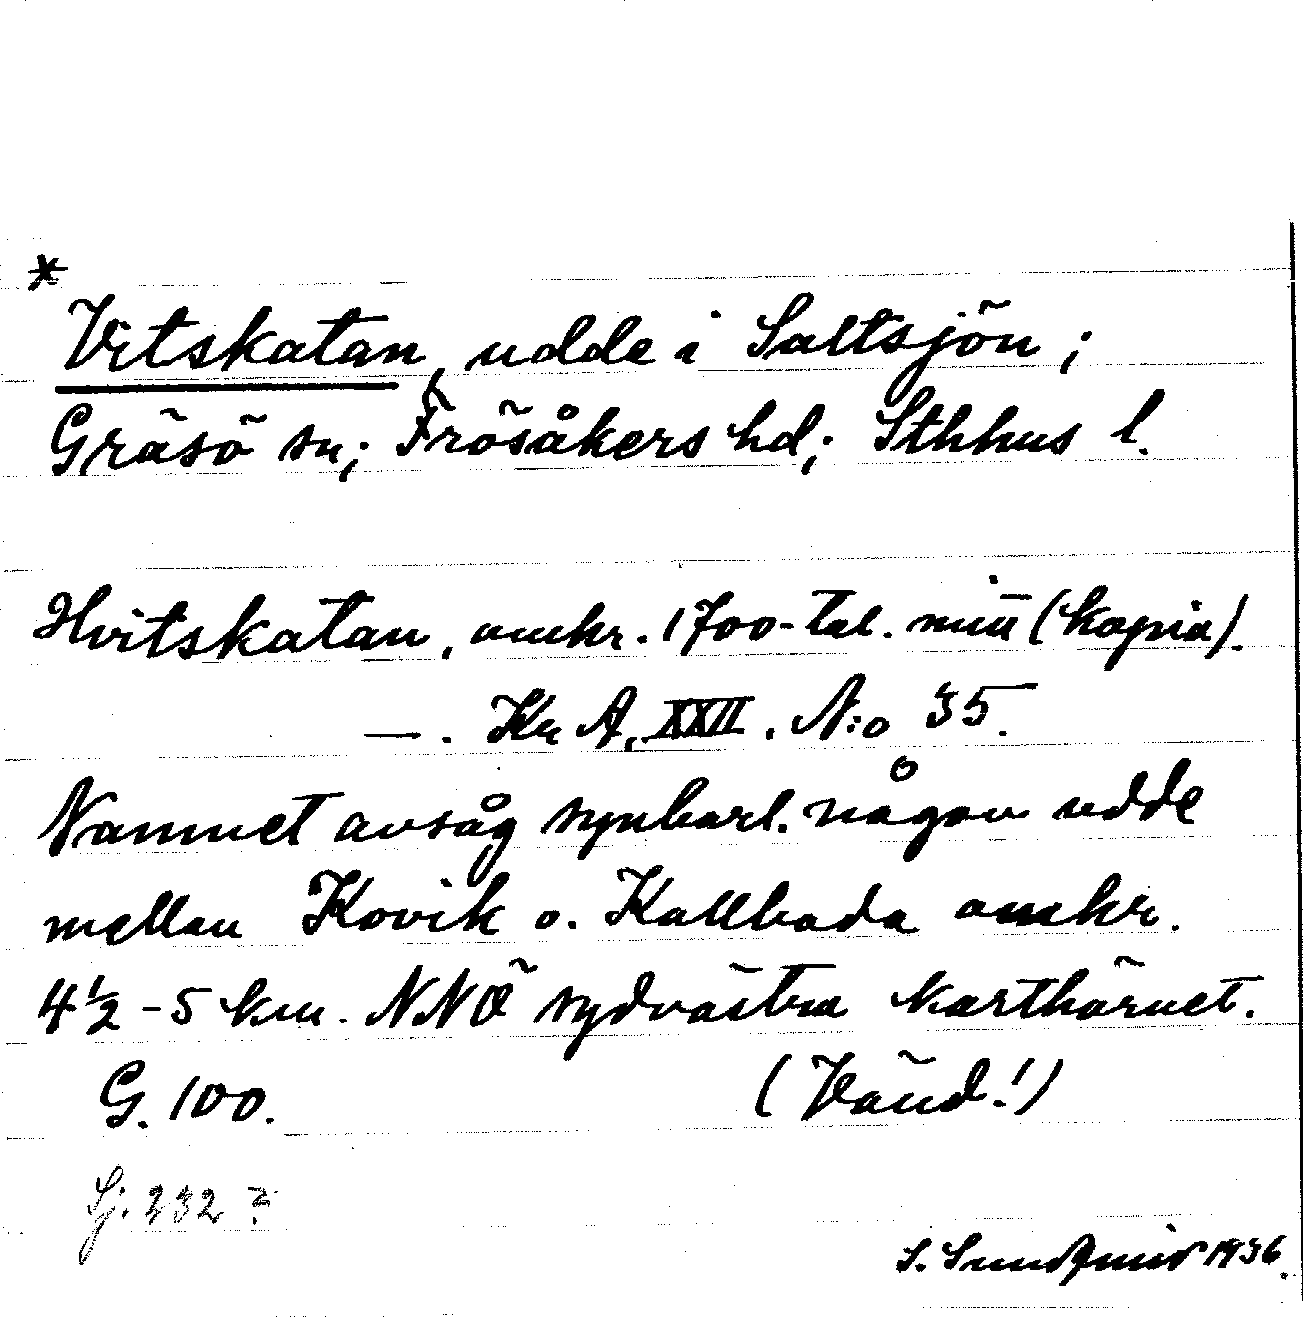 *
Vitskatan, udde i Saltsjön;
Gräsö sn; Frösåkers hd; Sthhus l.
Hvitskatan, omkr. 1700-tal. mitt (kopia).
—. Kr A. XXII. N:o 35.
Namnet avsåg synbarl. någon udde
mellan Kovik o. Kallboda omkr.
4½-5 km. NNÖ sydvästra karthörnet.
G. 100. (Vänd!)
Sj. 232?
S. Sundqvist 1936.